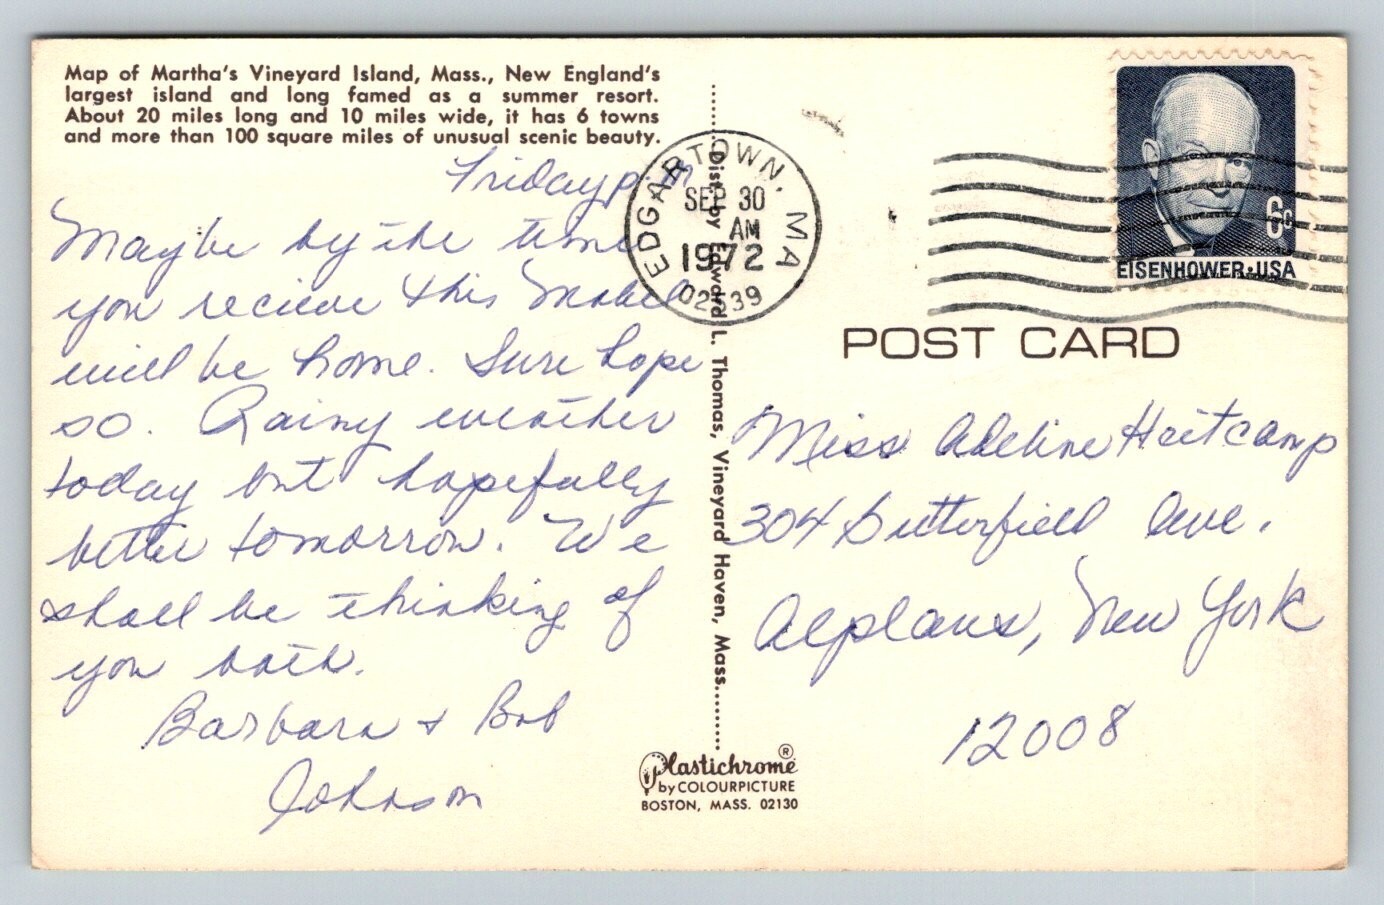 Map of Martha's Vineyard Island, Mass., New England's
largest island and long famed as a summer resort.
About 20 miles long and 10 miles wide, it has 6 towns
and more than 100 square miles of unusual scenic beauty.
Friday p.m
Maybe by the time
you recieve this Mabel
will be home. Sure hope
so. Rainy weather
today but hopefully
better tomorrow. We
shall be thinking of
you both.
Barbara + Bob
Johnson
Dist. by Edward L. Thomas, Vineyard Haven, Mass.
Plastichrome®
by COLOURPICTURE
BOSTON, MASS. 02130
EDGARTOWN, MA
SEP 30
AM
1972
02539
6c
EISENHOWER·USA
POST CARD
Miss Adeline Heitcamp
304 Butterfield Ave.
Alplaus, New York
12008